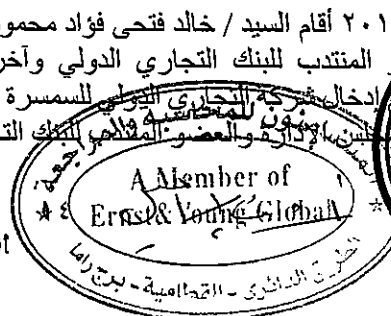 ٢٠١ أقام السيد / خالد فتحى فؤاد محمو
المنتدب للبنك التجاري الدولي وآخر
ادخال شركة التجاري الدولي للسمسرة
الإدارة والعضو المنتدب للبنك الت
للمحاسبة
A Member of
Ernst & Young Global
الطريق الدائرى - القطامية - برج راما